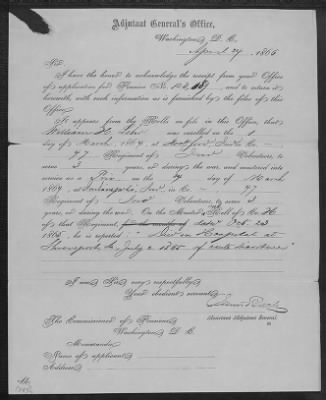 Adjutant General's Office,
Washington, D. C.
April 29, 1865
Sir:
I have the honor to acknowledge the receipt from your Office
of application for Pension No.
and to return it
herewith, with such information as is furnished by the files of this
Office.
It appears from the Rolls on file in this Office, that
William H. was enrolled on the 1
day of March 1864, at
47 Regiment of Ind Volunteers, to
serve 3 years, or during the war, and mustered into
service as a Priv on the 9 day of March
1864, at Indianapolis, Ind, in Co. 47
Regiment of Ind Volunteers, to serve 3
years, or during the war. On the Muster Roll of Co. H
of that Regiment, dated Oct. 23
1865, he is reported "Died in Hospital at
Shreveport La July 2 1865 of
I am, Sir, very respectfully,
Your obedient servant,
Assistant Adjutant General.
The Commissioner of Pensions,
Washington, D. C.
Memoranda:
Name of applicant
Address